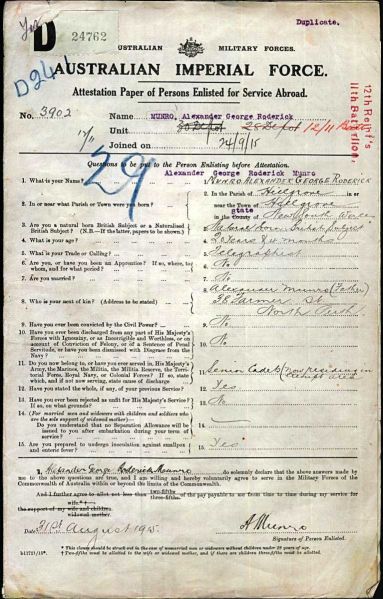 Duplicate.
D 24762
AUSTRALIAN MILITARY FORCES.
AUSTRALIAN IMPERIAL FORCE.
Attestation Paper of Persons Enlisted for Service Abroad.
12th Reinf's
11th Battalion.
No. 3902 Name MUNRO, Alexander George Roderick
Unit
Joined on 24/9/15
29
Questions to be put to the Person Enlisting before Attestation.
Alexander George Roderick Munro
1. What is your Name? 1. MUNRO ALEXANDER GEORGE RODERICK
2. In or near what Parish or Town were you born? 2. In the Parish of Hillgrove in or
near the Town of Hillgrove
state
in the County of New South Wales
3. Are you a natural born British Subject or a Naturalised
British Subject? (N.B.—If the latter, papers to be shown.) 3. Natural Born British Subject
4. What is your age? 4. months
5. What is your Trade or Calling? 5. Telegraphist
6. Are you, or have you been an Apprentice? If so, where, to
whom, and for what period? 6. No
7. Are you married? 7. No
8. Who is your next of kin? (Address to be stated) 8. Alexander Munro (Father)
36 St
North Perth
9. Have you ever been convicted by the Civil Power? 9. No
10. Have you ever been discharged from any part of His Majesty's
Forces with Ignominy, or as Incorrigible and Worthless, or on
account of Conviction of Felony, or of a Sentence of Penal
Servitude, or have you been dismissed with Disgrace from the
Navy? 10. No
11. Do you now belong to, or have you ever served in, His Majesty's
Army, the Marines, the Militia, the Militia Reserve, the Territorial Reserve, Royal Navy, or Colonial Forces? If so, state
which, and if not now serving, state cause of discharge 11. Senior Cadets now residing in
exempt area
12. Have you stated the whole, if any, of your previous Service? 12. Yes
13. Have you ever been rejected as unfit for His Majesty's Service?
If so, on what grounds? 13. No
14. (For married men and widowers with children and soldiers who
are the sole support of widowed mother)—
Do you understand that no Separation Allowance will be
issued to you after embarkation during your term of
service? 14. —
15. Are you prepared to undergo inoculation against smallpox
and enteric fever? 15. Yes
I, Alexander George Roderick Munro do solemnly declare that the above answers made by
me to the above questions are true, and I am willing and hereby voluntarily agree to serve in the Military Forces of the
Commonwealth of Australia within or beyond the limits of the Commonwealth.
And I further agree to allot not less than two-fifths of the pay payable to me from time to time during my service for
the support of my wife and children
widowed mother.
Date 31st August 1915. A Munro
Signature of Person Enlisted.